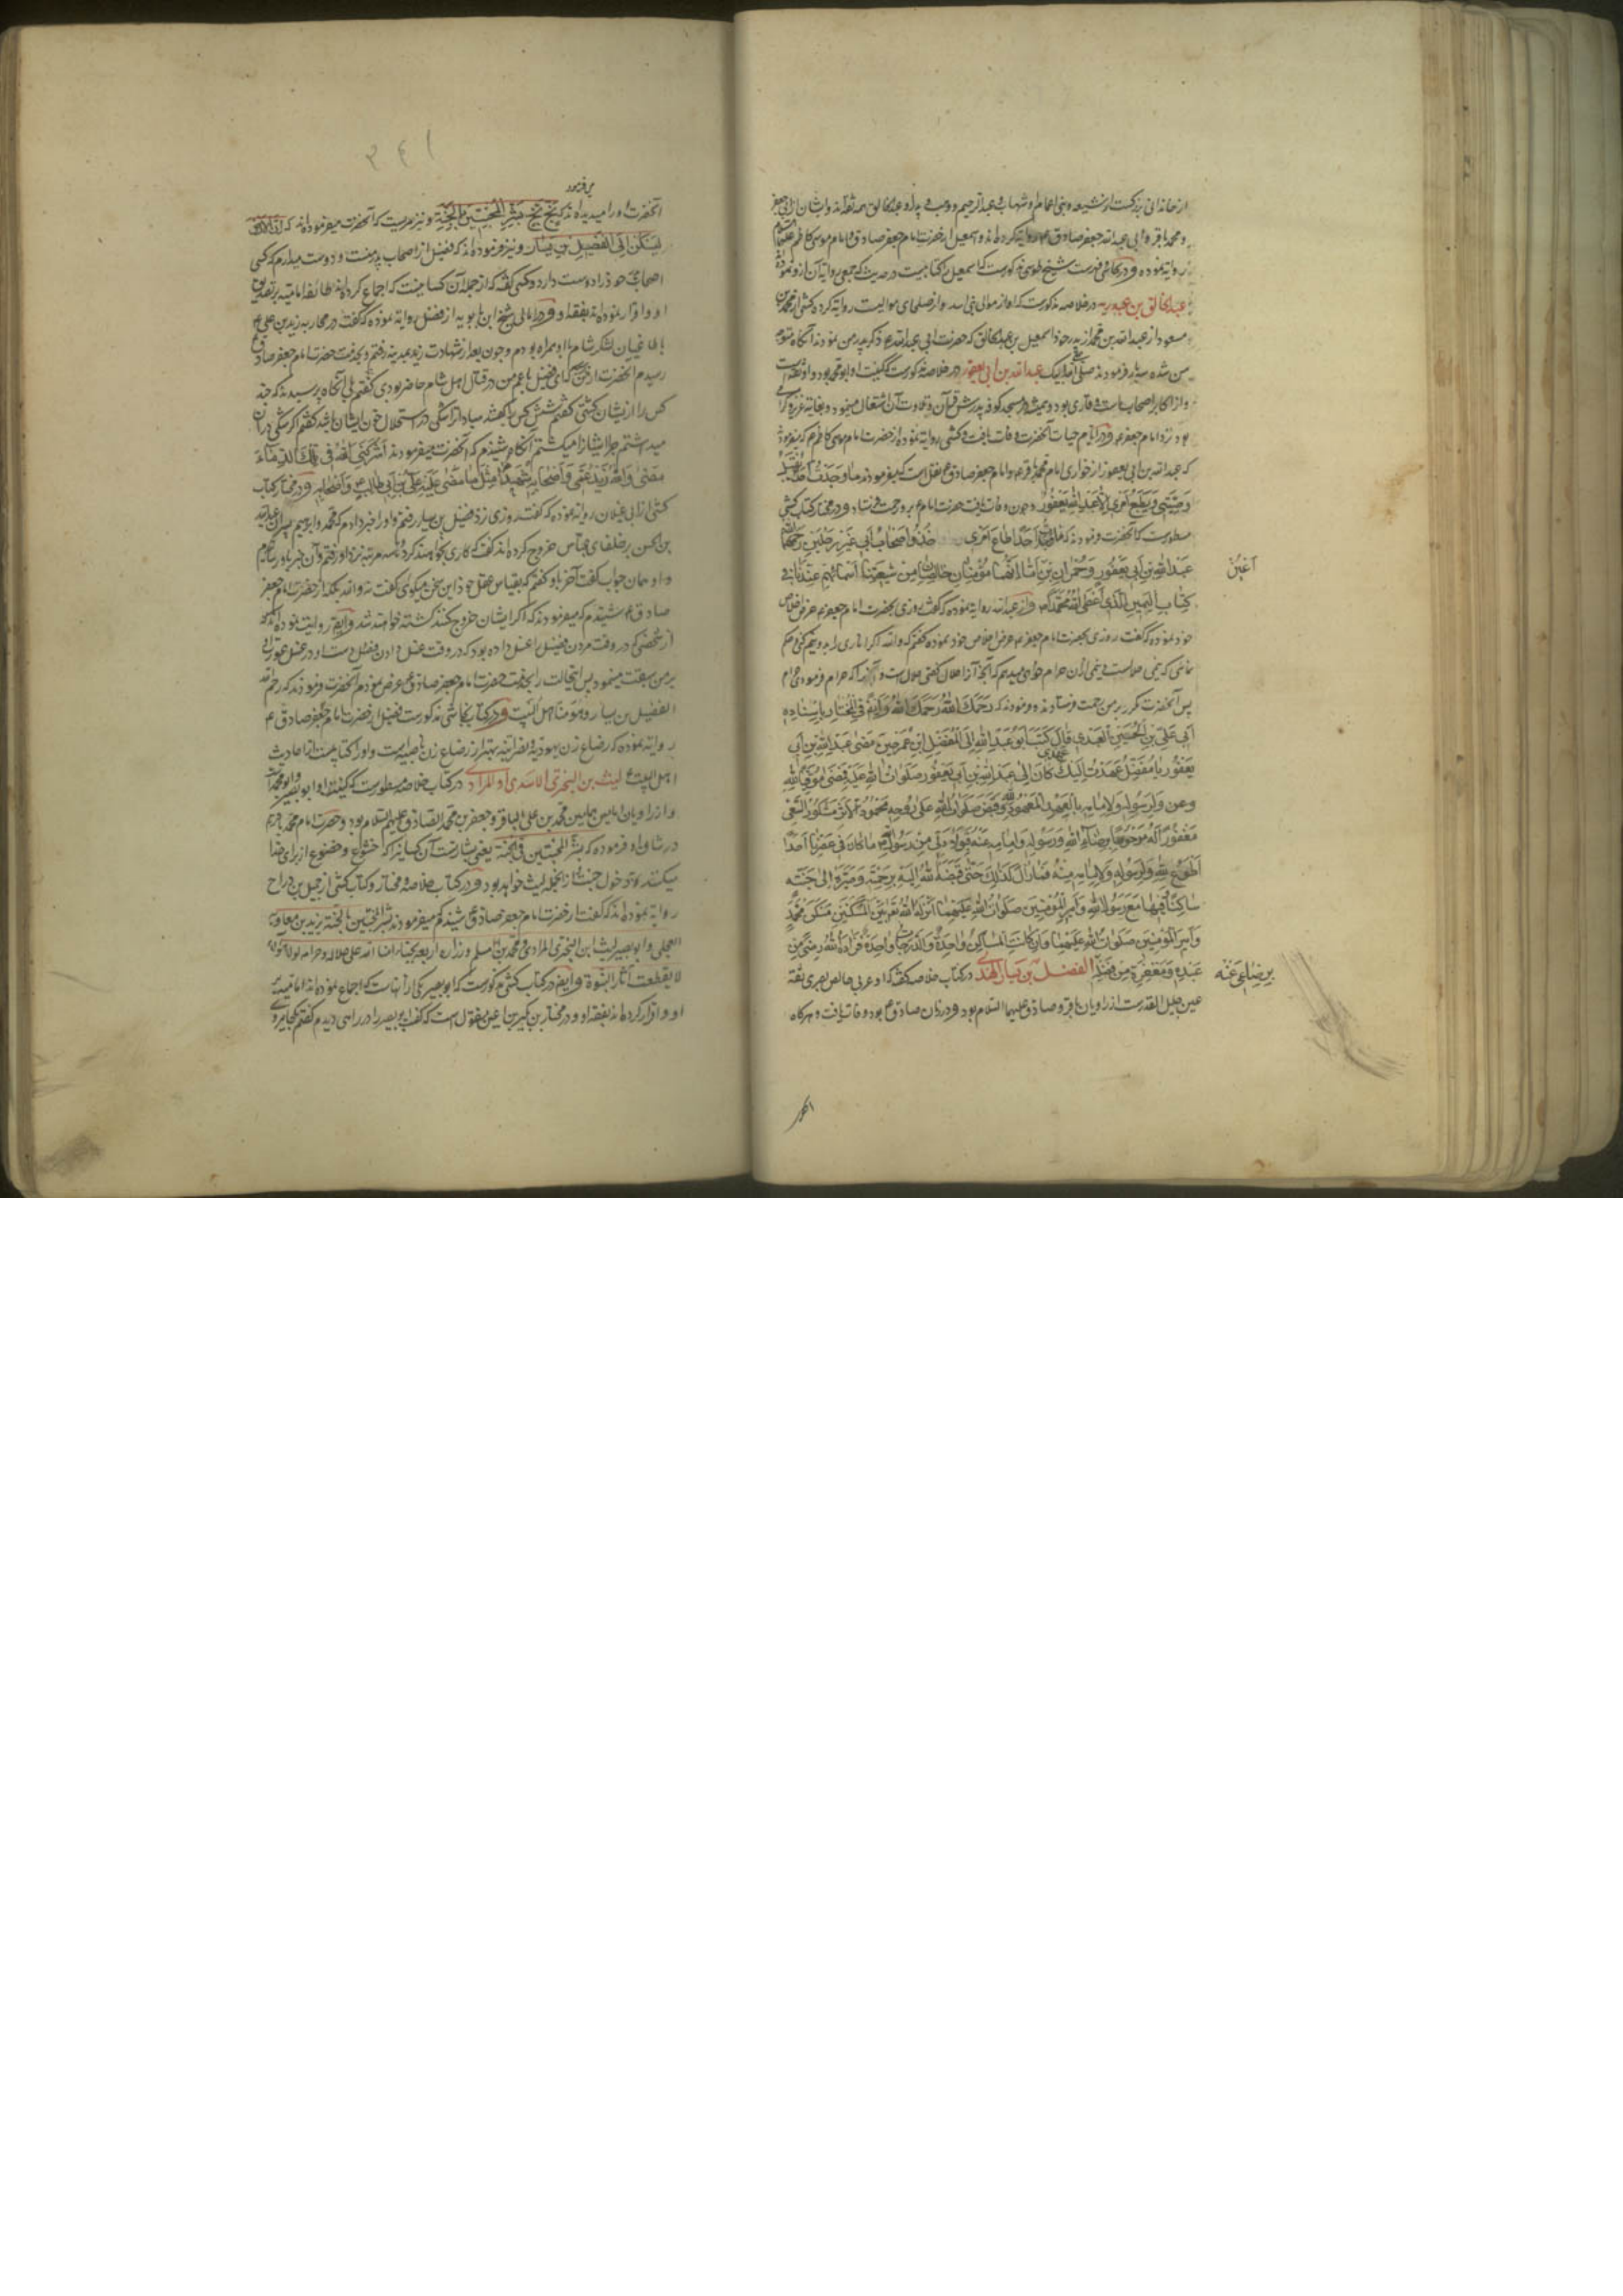 از خاندانی بزرگست از شیعه و بنی اعمام او شهاب و عبد الرحیم و وهب و پدر او عبد الخالق همه ثقه اند و ایشان از ابی جعفر
و محمد باقر و ابی عبد الله جعفر صادق ع روایة کرده اند و اسمعیل از حضرت امام جعفر صادق و امام موسی کاظم علیهما
روایة نموده و در فهرست شیخ طوسی مذکورست که اسمعیل را کتابیست در حدیث که جمعی روایة آن ازو نموده
عبد الخالق بن عبد ربه در خلاصه مذکورست که او از موالی بنی اسد و از صلحای موالیست روایة کرده کشی از محمد بن
مسعود از عبد الله بن محمد از پدر خود اسمعیل بن عبد الخالق که حضرت ابی عبد الله ع ذکر پدر من نمودند آنگاه متوجه
من شده سه بار فرمودند صلی الله علی ابیک عبد الله بن ابی یعفور در خلاصه مذکورست که کنیت او ابو محمد بود و او ثقه است
و از اکابر اصحاب ماست و قاری بود و همیشه در مسجد کوفه بدرس قرآن و تلاوت آن اشتغال مینمود و بغایة عزیز گرامی
بود نزد امام جعفر ع و در ایام حیات آنحضرت وفات یافت و کشی روایة نموده از حضرت امام موسی کاظم ع که میفرمود
که عبد الله بن ابی یعفور از حواری امام محمد باقر ع و امام جعفر صادق ع نقل است که میفرمودند ما وجدت احدا یقبل
وصیتی و یطیع امری الا عبد الله بن یعفور و چون وفات یافت حضرت امام ع برو رحمت فرستاد و در مختار کتاب کشی
مسطورست که آنحضرت فرمودند که ما وجدت احدا اطاع امری خذو اصحاب ابی غیر رجلین رحمهما الله
عبد الله بن ابی یعفور و حمران بن اما انهما مؤمنان خالصان من شیعتنا اسمائهم عندنا فی
اعین
کتاب الیمین الذی اعطی الله محمدا ص و از عبد الله روایة نموده که گفت روزی بحضرت امام جعفر ع عرض اخلاص
خود نموده که گفت روزی بحضرت امام جعفر ع عرض اخلاص خود نموده گفتم که والله اگر اناری را بدو نیم کنی و حکم
نمائی که نیمی حلالست و نیمی از آن حرام گواهی میدهم که آنچه آنرا حلال گفتی حلال است و آنچه را که حرام فرمودی حرام
پس آنحضرت مکرر بر من رحمت فرستادند و فرمودند که رحمک الله رحمک الله و ایضا فی المختار باسناده
ابی علی بن الحسین العبدی قال کتب ابو عبد الله الی المفضل ابن عمر حین مضی عبد الله بن ابی
یعفور یا مفضل عهدت الیک عهدی کان الی عبد الله بن ابی یعفور صلوات الله علیه فمضی موفیا لله
عز و جل و لرسوله و لامامه بالعهد المعهود لله و قبض صلوات الله علی روحه محمود الاثر مشکور السعی
مغفورا له مرحوما برضاء الله و رسوله و امامه عنه فولادتی من رسول الله ما کان فی عصرنا احدا
اطوع لله و لرسوله و لامامه منه فما زال کذلک حتی قبضه الله الیه برحمته و صیره الی جنته
ساکنا فیها مع رسول الله و امیر المؤمنین صلوات الله علیهما انزله الله بین المسکنین مسکن محمد
و امیر المؤمنین صلوات الله علیهما و ان کانت المساکن واحدة و الدرجات واحدة فزاده الله رضی من
عنده و مغفرة من فضله الفضیل بن یسار النهدی در کتاب خلاصه گفته که او عربی خالص بصری ثقه
برضای عنه
عین جلیل القدرست از راویان باقر و صادق علیهما السلام بود و در زمان صادق ع بود وفات یافت و هرگاه
آنحضرت
۳۴۱
می فرمود
آنحضرت او را میدیده اند که بخ بخ بشر المخبتین بالجنة و نیز مرویست که آنحضرت میفرموده اند که ان الارض
لیسکن الی الفضیل بن یسار و نیز فرموده اند که فضیل از اصحاب پدر منست و دوست میدارم که کسی
اصحاب پدر خود را دوست دارد و کشی گفته که از جمله آن کسانیست که اجماع کرده اند طائفه امامیه بر تصدیق
او و اقرار نموده اند بفقه او و در امالی شیخ ابن بابویه از فضیل روایة نموده که گفت در محاربه زید بن علی ع
با طاغیان لشکر شام با او همراه بودم و چون بعد از شهادت زید بمدینه رفتم و بخدمت حضرت امام جعفر صادق ع
رسیدم آنحضرت از من پرسید که ای فضیل با عم من در قتال اهل شام حاضر بودی گفتم بلی آنگاه پرسید که چند
کس را از ایشان کشتی گفتم شش کس را گفتند مبادا ترا شکی در استحلال خون ایشان باشد گفتم اگر شکی در آن
میداشتم چرا ایشانرا میکشتم آنگاه شنیدم که آنحضرت میفرمودند اشرکنی الله فی تلک الدماء
مضی والله زید عمی و اصحابه شهیدا مثل ما مضی علیه علی بن ابی طالب ع و اصحابه و در مختار کتاب
کشی از ابی غیلان روایة نموده که گفت روزی نزد فضیل بن یسار رفتم و او را خبر دادم که محمد و ابرهیم پسران عبد الله
بن الحسن بر خلفای عباس خروج کرده اند گفت کاری نخواهند کرد تا سه مرتبه نزد او رفتم و آن خبر باو رسانیدم
و او همان جواب گفت آخر باو گفتم که بقیاس عقل خود این سخن میگوی گفت نه والله بلکه از حضرت امام جعفر
صادق ع شنیدم که میفرمودند که اگر ایشان خروج کنند کشته خواهند شد و ایضا روایت نموده اند که
از شخصی که در وقت مردن فضیل او را غسل داده بود که در وقت غسل دادن فضیل دست او در غسل عورت او
بر من سبقت مینمود پس این حالت را بخدمت حضرت امام جعفر صادق ع عرض نمودم آنحضرت فرمودند که رحم الله
الفضیل بن یسار و هو منا اهل البیت و در کتاب نجاشی مذکورست فضیل از حضرت امام جعفر صادق ع
روایة نموده که رضاع زن یهودیه و نصرانیه بهتر از رضاع زن ناصبیه است و او را کتابیست از احادیث
اهل البیت ع لیث بن البختری الاسدی او المرادی در کتاب خلاصه مسطورست که کنیت او ابو بصیر و ابو محمد است
و از راویان امامین همامین محمد بن علی الباقر و جعفر بن محمد الصادق علیهم السلام بود و حضرت امام محمد باقر ع
در شان او فرموده که بشر المخبتین فی الجنة یعنی بشارتست آن کسانیرا که خشوع و خضوع از برای خدا
میکنند بدخول جنت و از آنجمله لیث خواهد بود و در کتاب خلاصه و مختار و کتاب کشی از جمیل بن دراج
روایة نموده اند که گفت از حضرت امام جعفر صادق ع شنیدم که میفرمودند بشر المخبتین بالجنة یزید بن معاویة
العجلی و ابو بصیر لیث ابن البختری المرادی و محمد بن مسلم و زراره اربعة نجباء امناء الله علی حلاله و حرامه لولا هؤلاء
لانقطعت آثار النبوة و ایضا در کتاب کشی مذکورست که ابو بصیر یکی از آنهاست که اجماع نموده اند امامیه
او و اقرار کرده اند بفقه او و در مختار بن بکیر بن اعین منقول است که گفت ابو بصیر را در راهی دیدم گفتم بکجا میروی